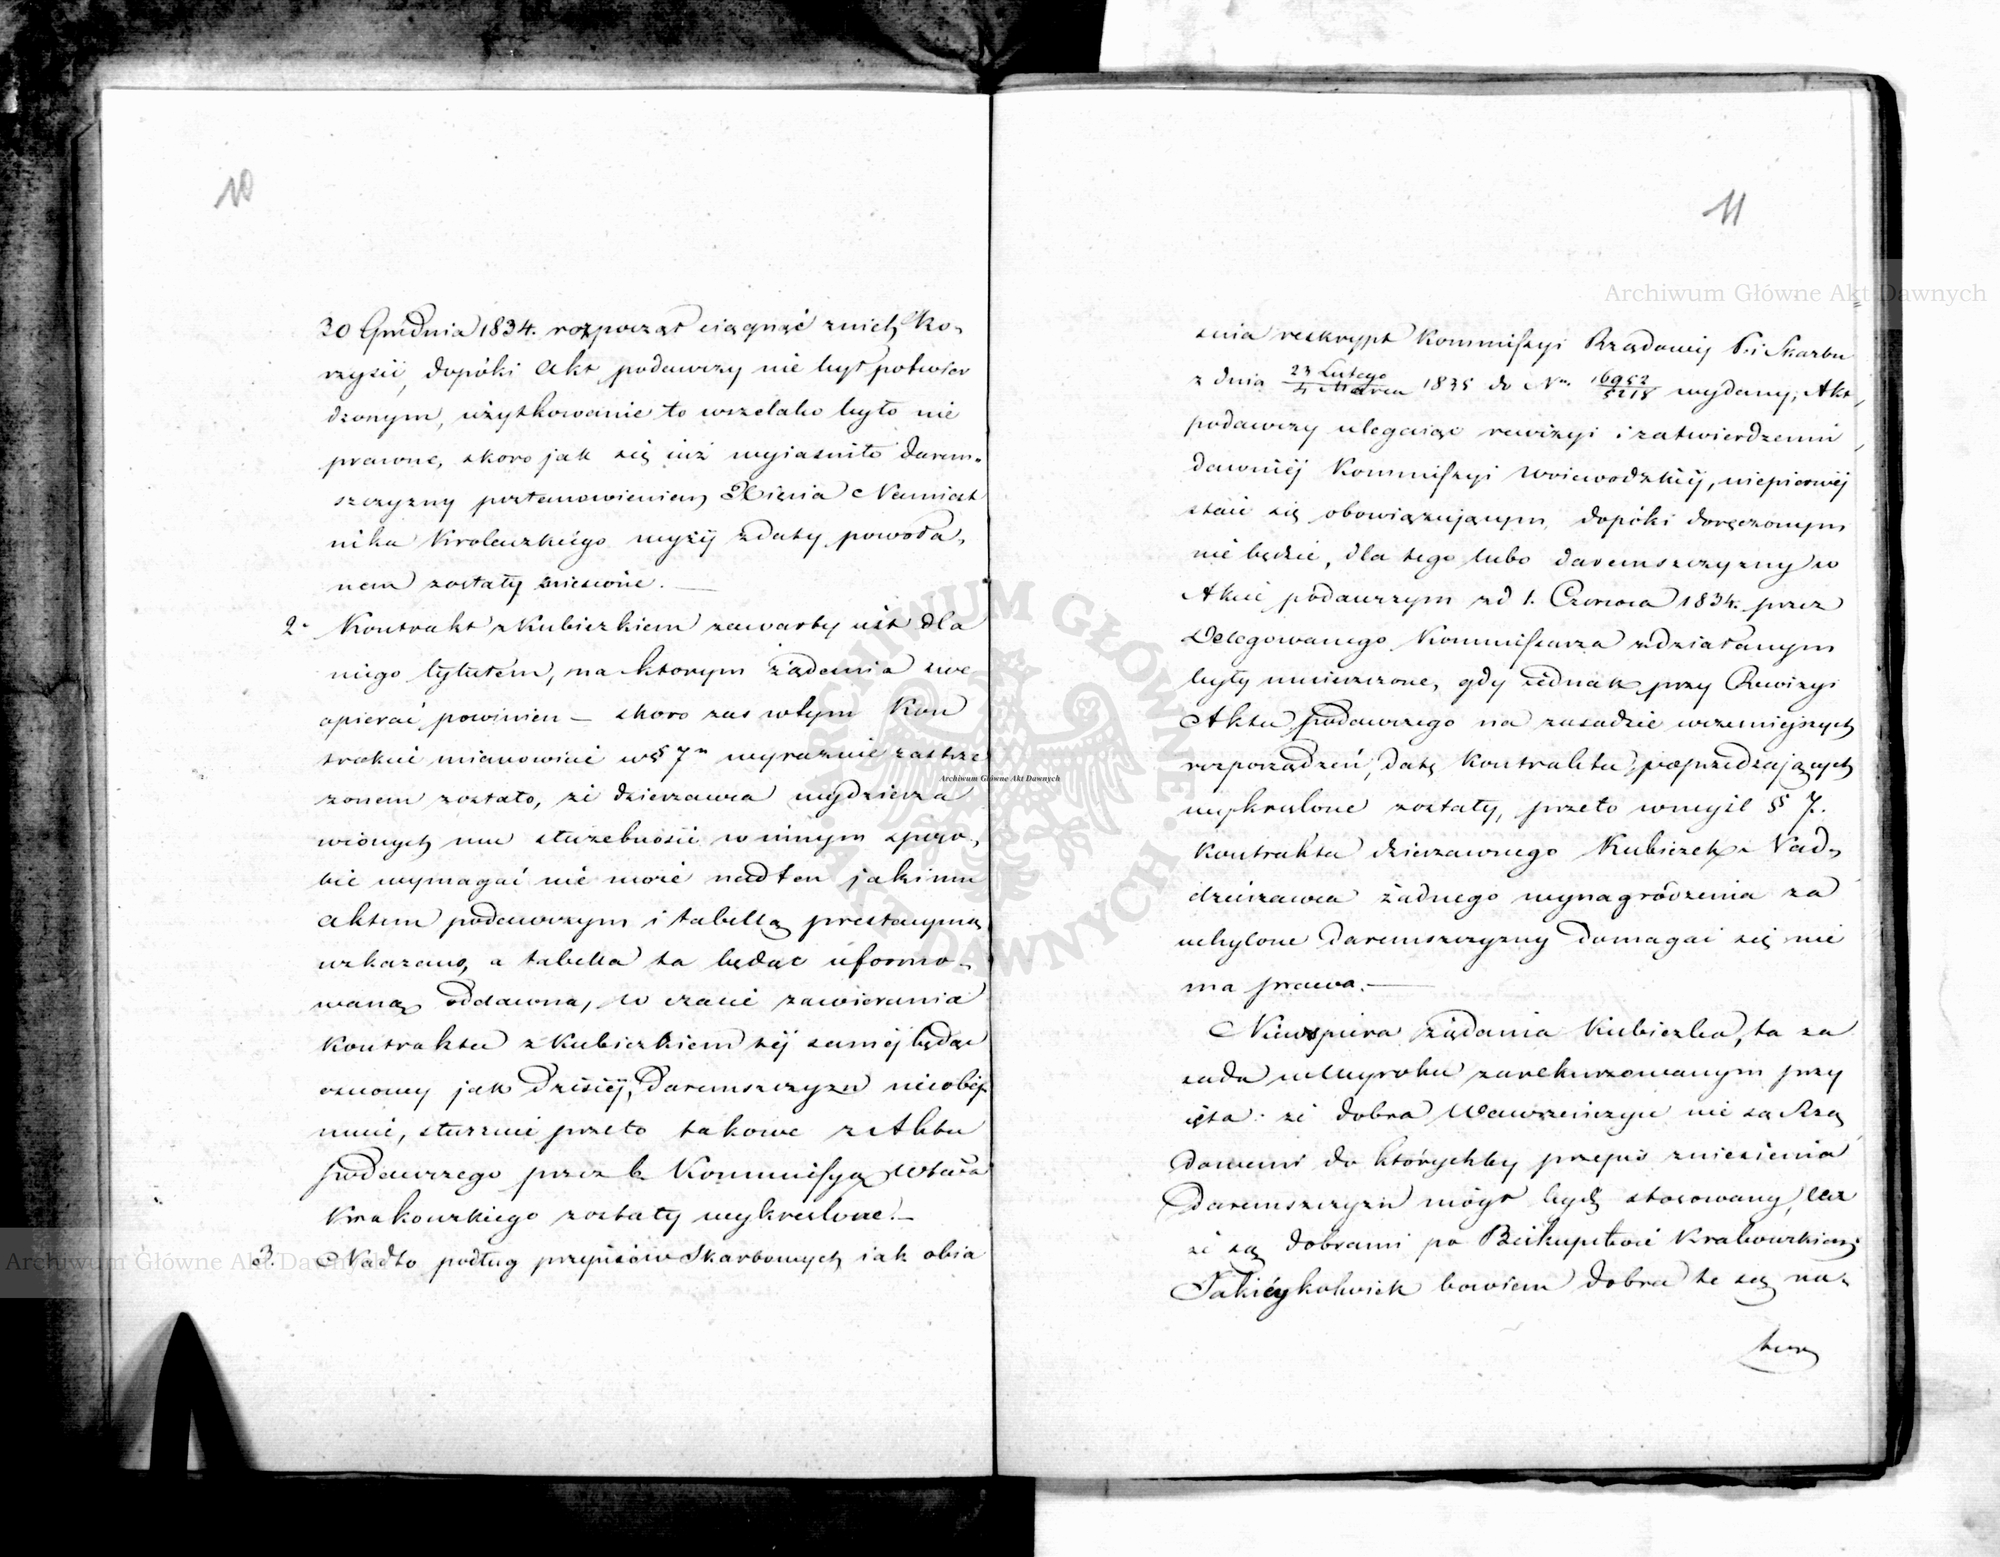 10
30 Grudnia 1834. rozpoczął ciągnąć z nich ko-
rzyści, dopóki Akt podawczy nie był potwier
dzonym, użytkowanie to wszelako było nie
prawne, skoro jak się już wyjaśniło darem-
szczyzny postanowieniem Xięcia Namiest
nika Królewskiego wyżej zdaty powoła-
nem zostały zniesione. —
2. Kontrakt z Kubiczkiem zawarty jest dla
niego tytułem, na którym żądania swe
opierać powinien — skoro zaś w tym Kon
trakcie mianowicie w § 7m wyraźnie zastrze
żonem zostało, że dzierżawca wydzierża
wionych mu służebności w innym sposo-
bie wymagać nie może nad ten jaki mu
aktem podawczym i tabellą prestacyiną
wskazano, a tabella ta będąc uformo-
waną oddawna, w czasie zawierania
Kontraktu z Kubiczkiem tej samej będąc
osnowy jak dzisiej, Daremszczyzn nieobej
muie, słusznie przeto takowe z Aktu
podawczego przez b. Kommissyą Wtwa
Krakowskiego zostały wykreślone. —
3. Nadto podług przepisów Skarbowych iak obia
11
śnia reskrypt Kommissyi Rządowej P. i Skarbu
z dnia 23 Lutego / 4 Marca 1835 do Nru 16952 / 5218 wydany, Akt
podawczy ulegaiąc rewizyi i zatwierdzeniu
dawniej Kommissyi Woiewodzkiej, niepierwej
staie się obowiązującym, dopóki doręczonym
nie będzie, dla tego lubo daremszczyzny w
Akcie podawczym zd 1. Czerwca 1834. przez
Delegowanego Kommissarza zdziałanym
były umieszczone, gdy jednak przy Rewizyi
Aktu podawczego na zasadzie wcześniejszych
rozporządzeń, datę Kontraktu poprzedzających
wykreślone zostały, przeto w myśl §§ 7.
Kontraktu dzierżawnego Kubiczek i Nad-
dzierżawca żadnego wynagrodzenia za
uchylone daremszczyzny domagać się nie
ma prawa. —
Niewspiera żądania Kubiczka, ta za
sada w Wyroku zarekurzowanym przy
ięta: że dobra Wawrzeńczyce nie są Rzą
dowemi do którychby przepis zniesienia
Daremszczyzn mógł być stosowany, lecz
że są dobrami po Biskupstwie Krakowskiem
Jakieykolwiek bowiem dobra te są na-
tury
Archiwum Główne Akt Dawnych
Archiwum Główne Akt Dawnych
Archiwum Główne Akt Dawnych
ARCHIWUM GŁÓWNE AKT DAWNYCH